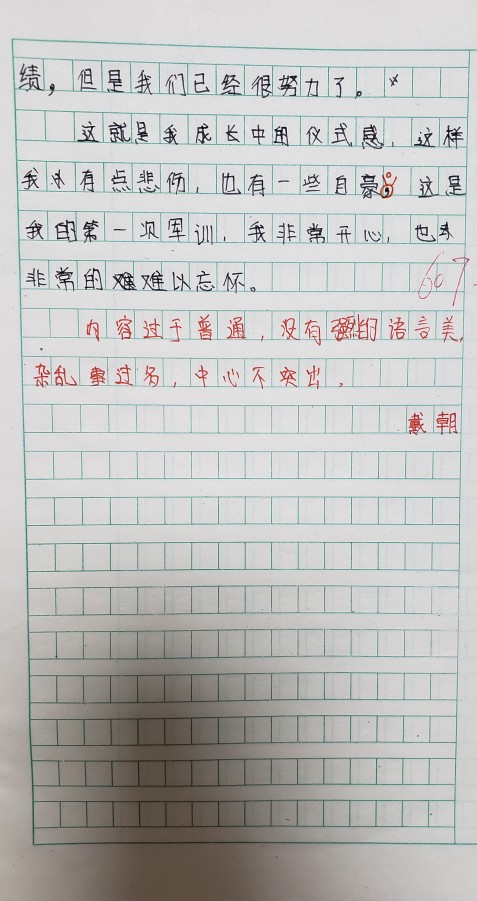 绩，但是我们已经很努力了。
这就是我成长中的仪式感，这样
我有点悲伤，也有一些自豪。这是
我的第一次军训，我非常开心，也
非常的难以忘怀。
607
内容过于普通，没有强烈的语言美，
杂乱 过多，中心不突出。
戴朝